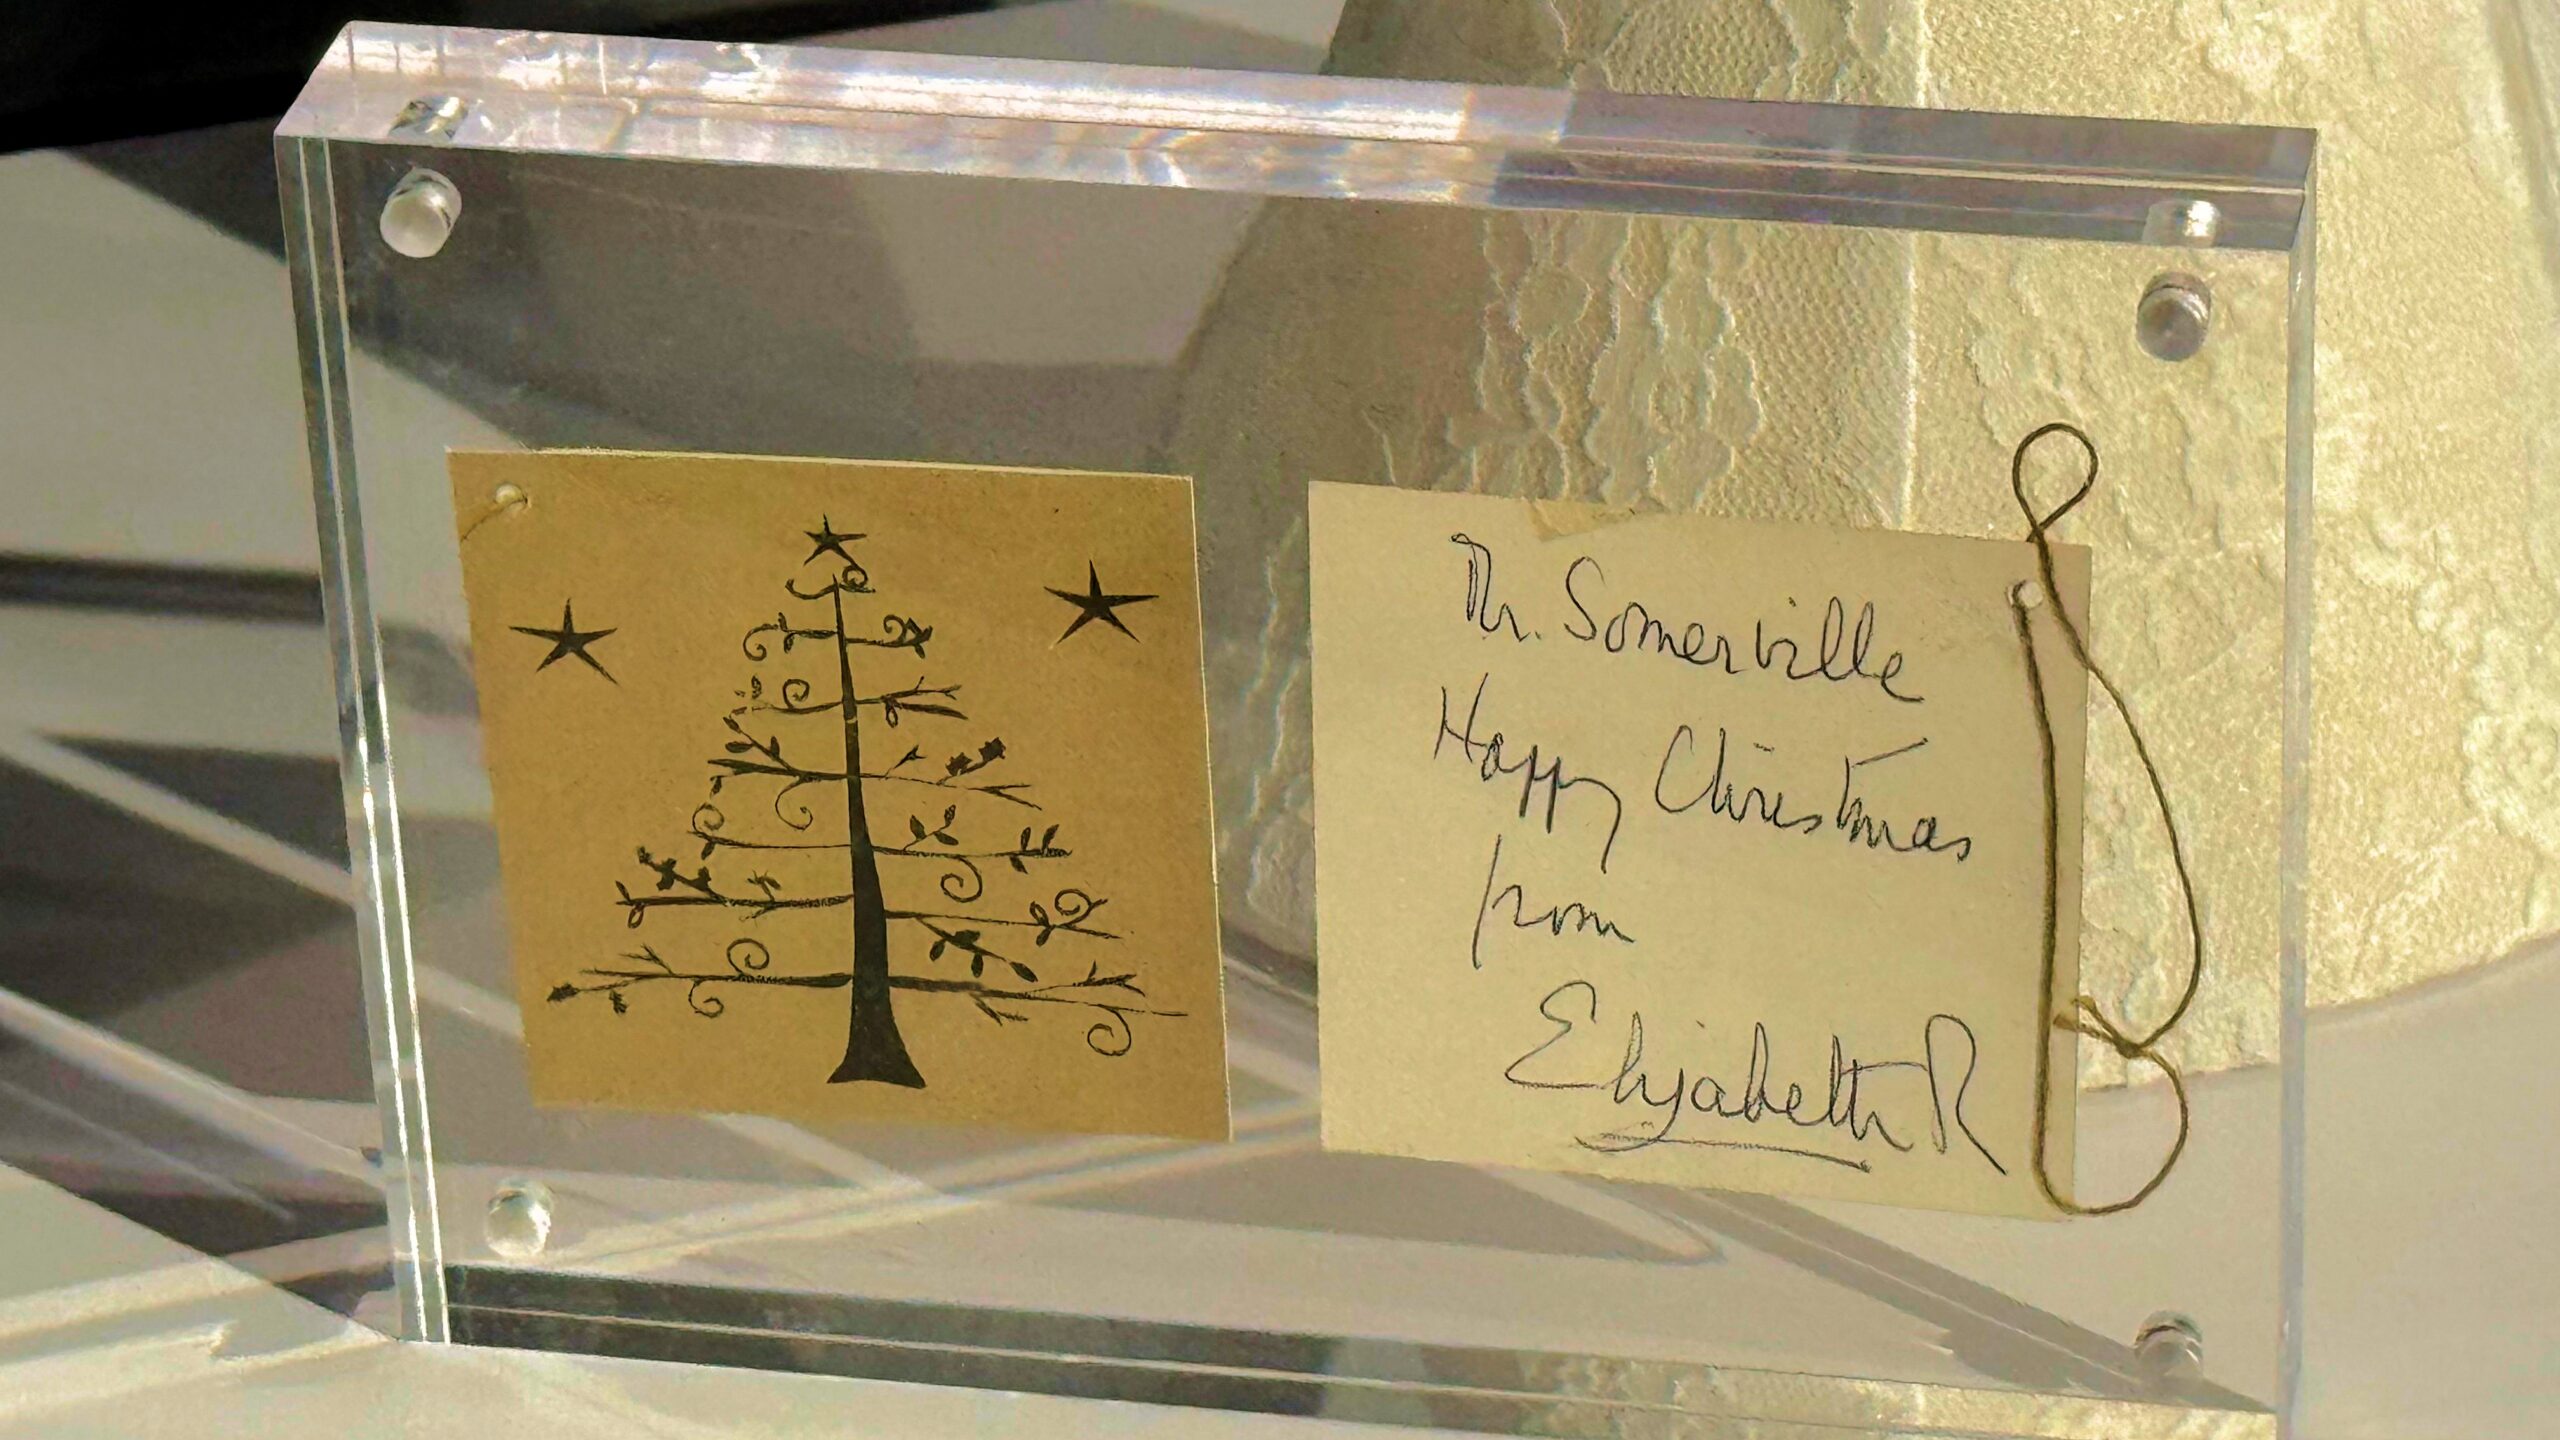 Mr. Somerville
Happy Christmas
from
Elizabeth R